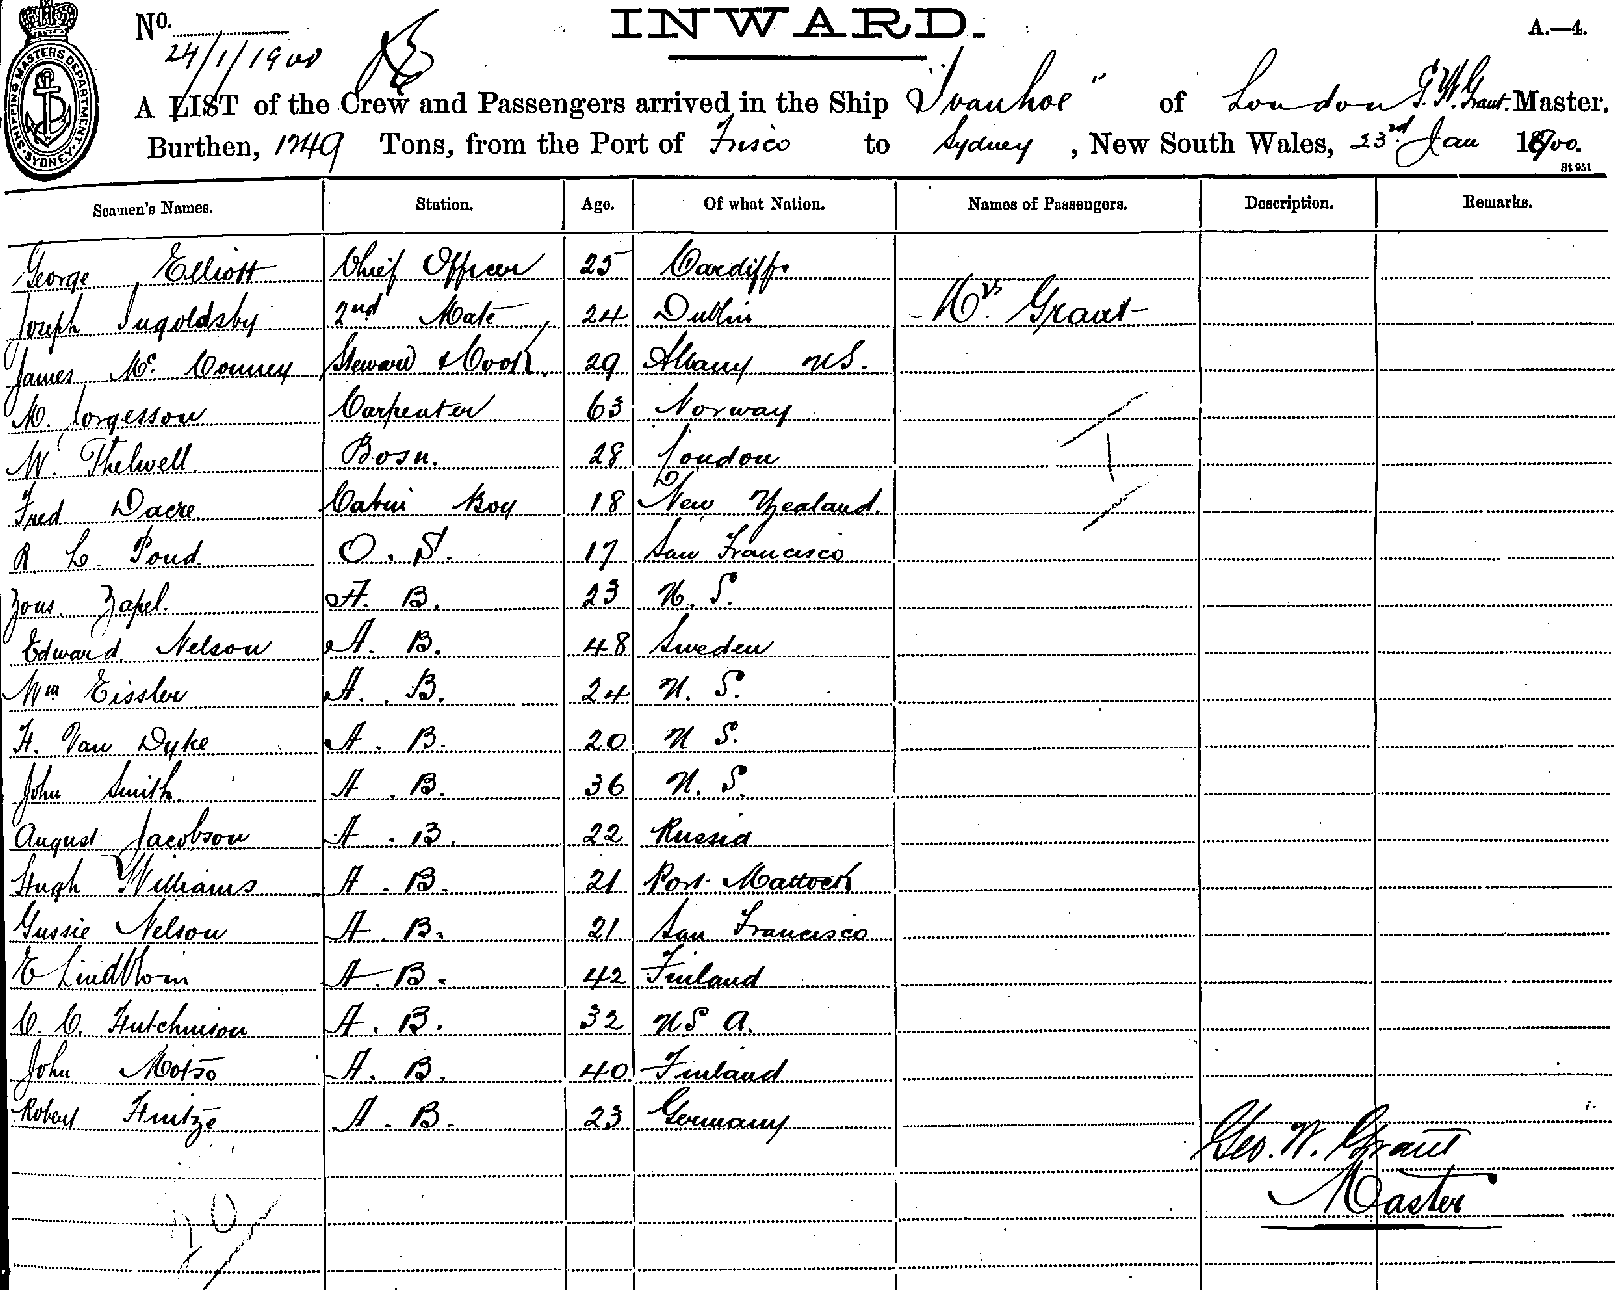 No.
INWARD.
A.—4.
24/1/1900
SHIPPING MASTERS DEPARTMENT SYDNEY
A LIST of the Crew and Passengers arrived in the Ship "Ivanhoe" of London G. W. Grant Master.
Burthen, 1249 Tons, from the Port of Frisco to Sydney, New South Wales, 23rd Jan 1900.
St 951
Seamen's Names. Station. Age. Of what Nation. Names of Passengers. Description. Remarks.
George Elliott Chief Officer 25 Cardiff
Joseph Ingoldsby 2nd Mate 24 Dublin Mrs Grant
James Mc Conney Steward & Cook 29 Albany US.
M. Jorgesson Carpenter 63 Norway
W. Thelwell Bosn. 28 London
Fred Dacre Cabin Boy 18 New Zealand
R. L. Pond O. S. 17 San Francisco
Zous. Zapel. A. B. 23 U. S.
Edward Nelson A. B. 48 Sweden
Wm Eissler A. B. 24 U. S.
H. Van Dyke A. B. 20 U S.
John Smith A. B. 36 U. S.
August Jacobson A. B. 22 Russia
Hugh Williams A. B. 21 Port Mattock
Gussie Nelson A. B. 21 San Francisco
E Lindblom A. B. 42 Finland
C. C. Hutchinson A. B. 32 US A.
John Motso A. B. 40 Finland
Robert Hintze A. B. 23 Germany
Geo. W. Grant
Master
20
1